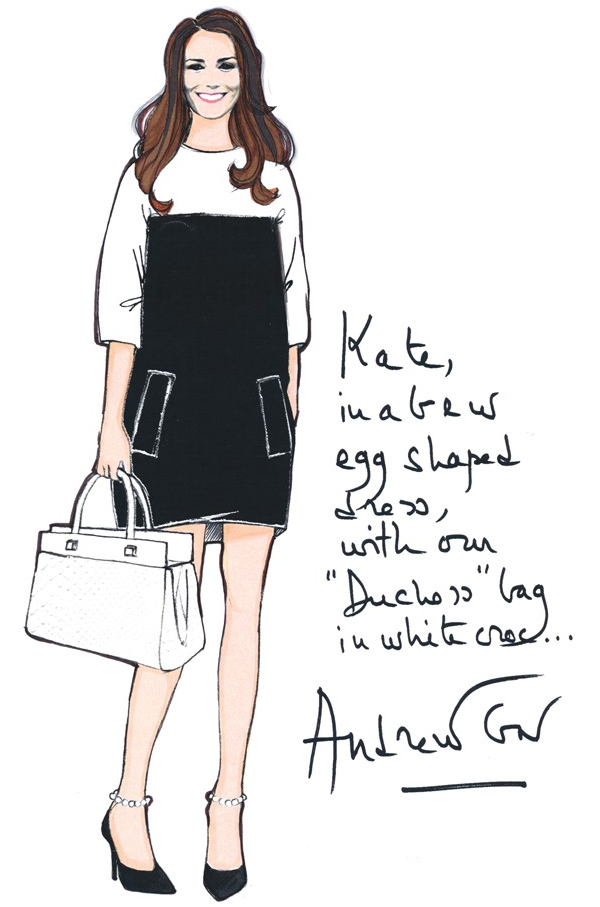 Kate,
in a b & w
egg shaped
dress,
with our
"Duchess" bag
in white croc...
Andrew GN